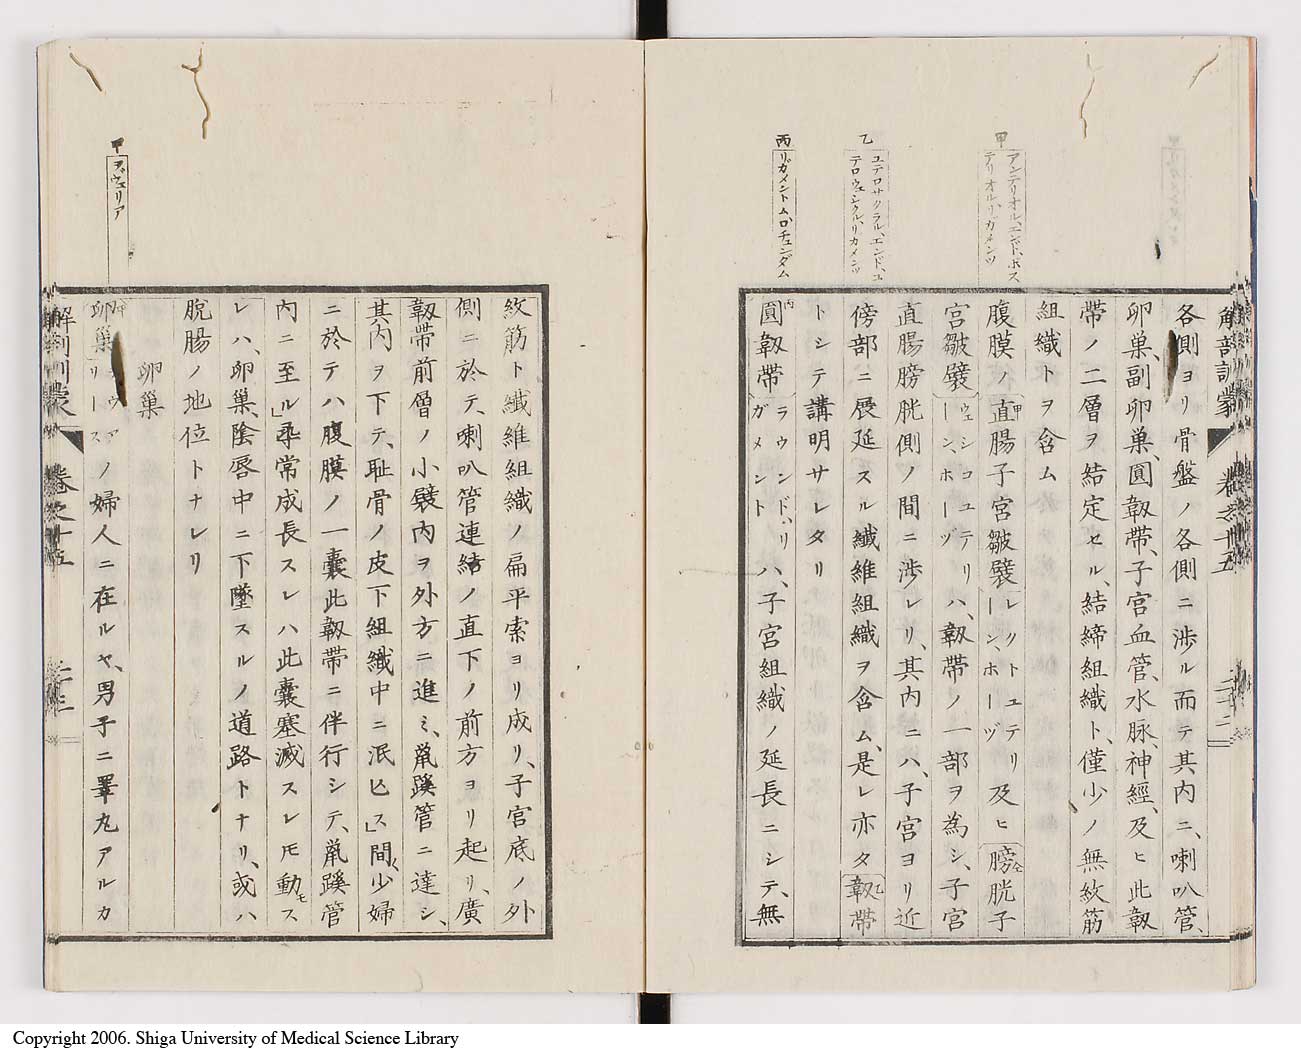 甲
アンテリオル、エンド、ポス
テリオル、リガメンツ
乙
ユテロサクラル、エンド、ユ
テロウェシクル、リカメンツ
丙
リガメントム、ロチュンダム
解剖訓蒙 卷之十五
各側ヨリ骨盤ノ各側ニ渉ル而テ其内ニ、喇叭管、
卵巢、副卵巢、圓韌帶、子宮血管、水脉、神經、及ヒ此韌
帶ノ二層ヲ結定セル、結締組織ト、僅少ノ無紋筋
組織トヲ含ム
腹膜ノ直腸子宮皺襞レクトユテリーン、ホーヅ及ヒ膀胱子
宮皺襞ウェシコユテリーン、ホーヅハ、韌帶ノ一部ヲ為シ、子宮
直腸膀胱側ノ間ニ渉レリ、其内ニハ、子宮ヨリ近
傍部ニ展延スル纎維組織ヲ含ム、是レ亦タ韌帶
トシテ講明サレタリ
圓韌帶ラウンド、リガメントハ、子宮組織ノ延長ニシテ、無
甲
ヲヴェリア
紋筋ト纎維組織ノ扁平索ヨリ成リ、子宮底ノ外
側ニ於テ、喇叭管連結ノ直下ノ前方ヨリ起リ、廣
韌帶前僧ノ小襞内ヲ外方ニ進ミ、鼠蹊管ニ達シ、
其内ヲ下テ、耻骨ノ皮下組織中ニ泯ヒス」間〻少婦
ニ於テハ腹膜ノ一囊此韌帶ニ伴行シテ、鼠蹊管
内ニ至ル」尋常成長スレハ此囊塞滅スレ𪜈動モス
レハ、卵巢、陰唇中ニ下墜スルノ道路トナリ、或ハ
脫腸ノ地位トナレリ
卵巢
卵巢ノ婦人ニ在ルヤ、男子ニ睪丸アルカ
解剖訓蒙 卷之十五